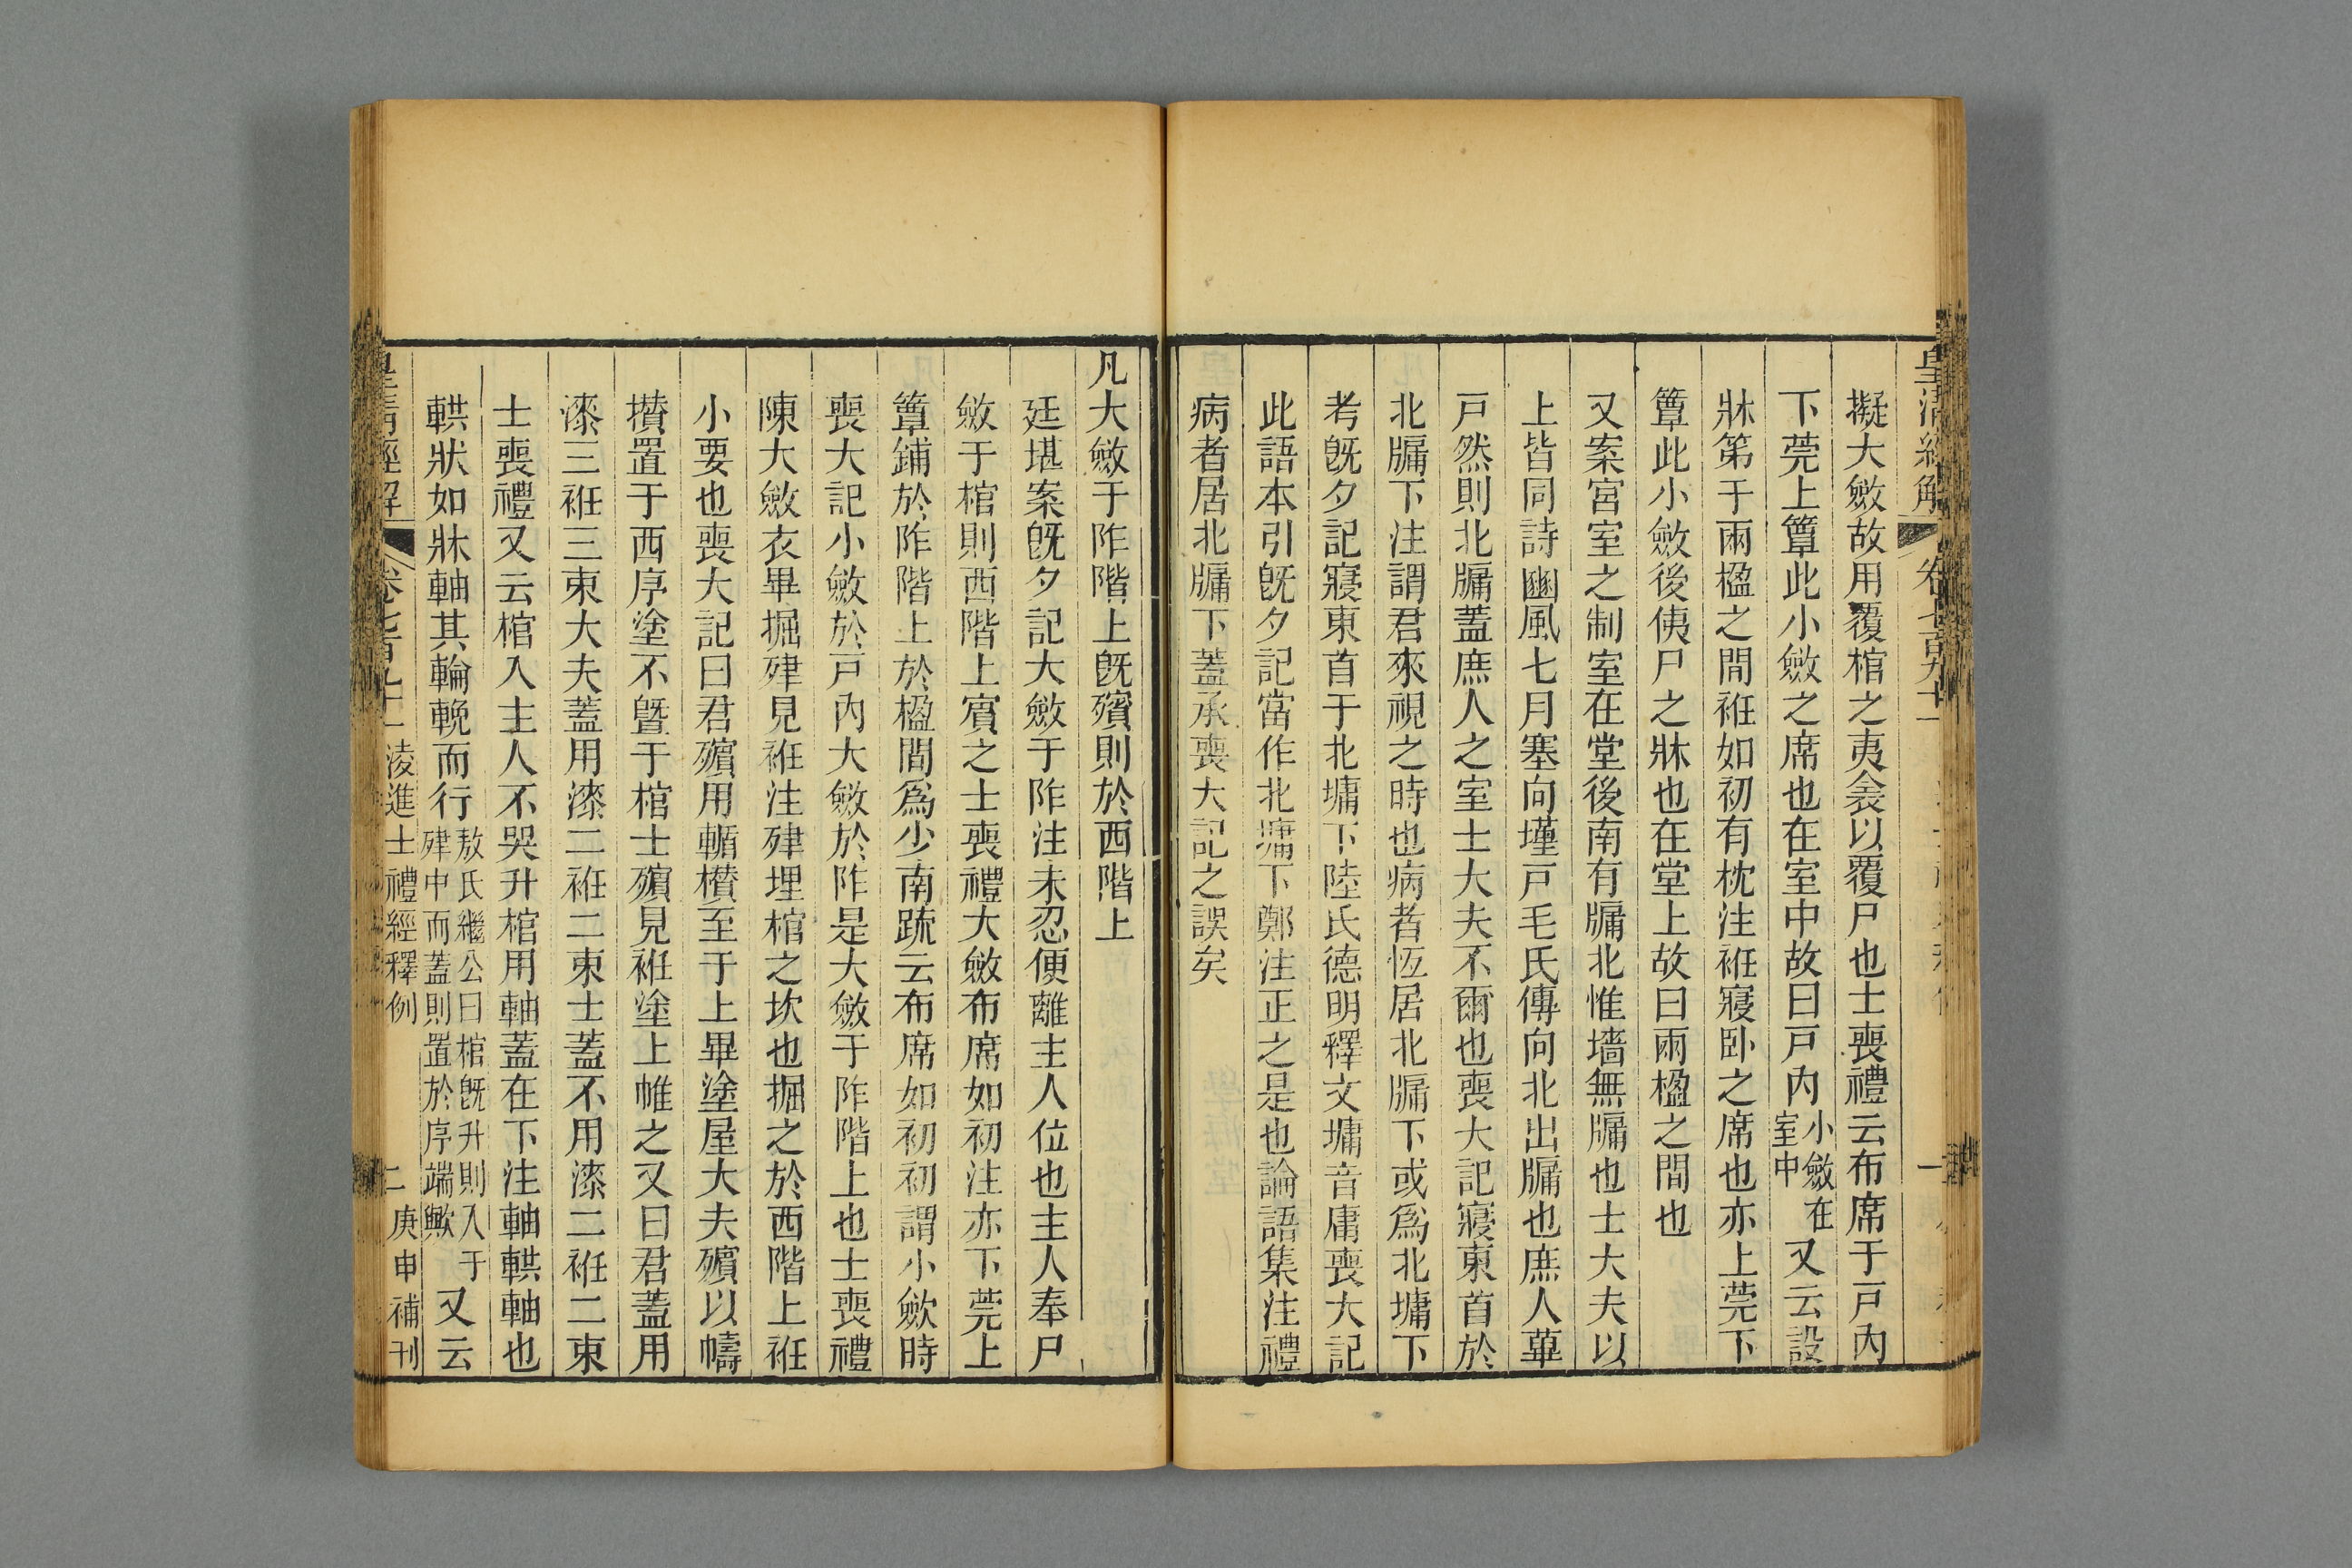 皇清經解 卷七百九十一
擬大斂故用覆棺之夷衾以覆尸也士喪禮云布席于戸內
下莞上簟此小斂之席也在室中故曰戸內小斂在室中又云設
牀第于兩楹之間衽如初有枕注衽寢臥之席也亦上莞下
簟此小斂後俠尸之牀也在堂上故曰兩楹之間也
又案宮室之制室在堂後南有牖北惟墻無牖也士大夫以
上皆同詩豳風七月塞向墐戸毛氏傳向北出牖也庶人蓽
戸然則北牖蓋庶人之室士大夫不爾也喪大記寢東首於
北牖下注謂君來視之時也病者恆居北牖下或爲北墉下
考旣夕記寢東首于北墉下陸氏德明釋文墉音庸喪大記
此語本引旣夕記當作北墉下鄭注正之是也論語集注禮
病者居北牖下蓋承喪大記之誤矣
凡大斂于阼階上旣殯則於西階上
廷堪案旣夕記大斂于阼注未忍便離主人位也主人奉尸
斂于棺則西階上賓之士喪禮大斂布席如初注亦下莞上
簟鋪於阼階上於楹間爲少南疏云布席如初初謂小斂時
喪大記小斂於戸內大斂於阼是大斂于阼階上也士喪禮
陳大斂衣畢掘肂見衽注肂埋棺之坎也掘之於西階上衽
小要也喪大記曰君殯用輴欑至于上畢塗屋大夫殯以幬
攢置于西序塗不曁于棺士殯見衽塗上帷之又曰君蓋用
漆三衽三束大夫蓋用漆二衽二束士蓋不用漆二衽二束
士喪禮又云棺入主人不哭升棺用軸蓋在下注軸輁軸也
輁狀如牀軸其輪輓而行敖氏繼公曰棺旣升則入于肂中而蓋則置於序端歟又云
皇清經解 卷七百九十一 淩進士禮經釋例 二 庚申補刊